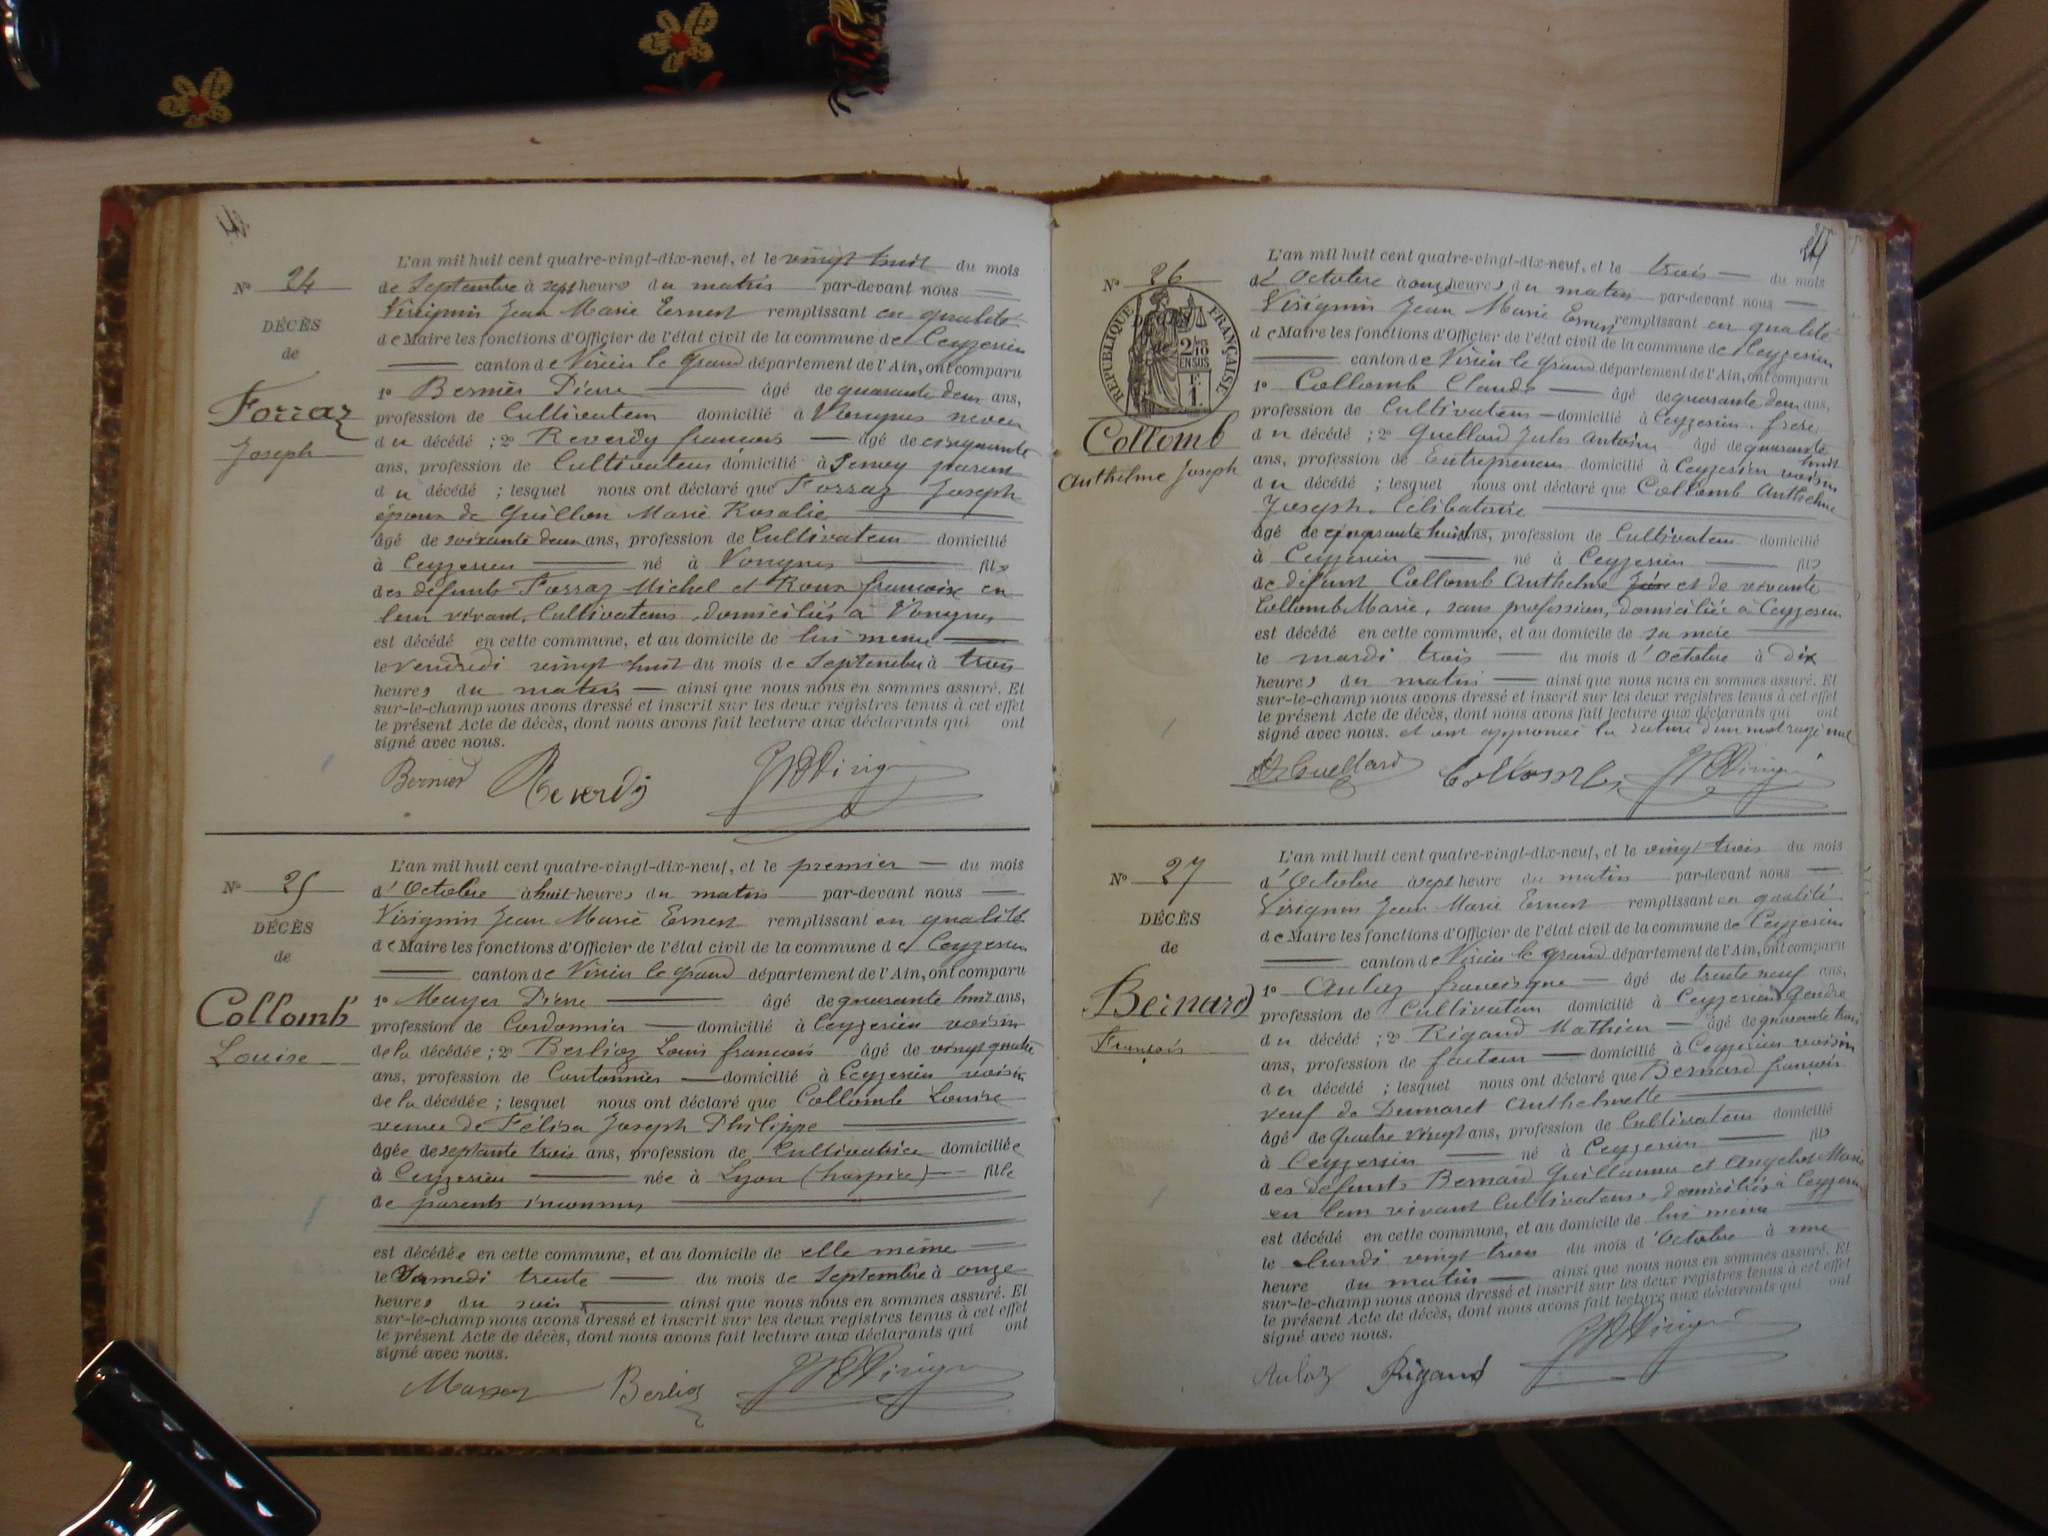 Nº 24
DÉCÈS
de
Forraz
Joseph
L'an mil huit cent quatre-vingt-dix-neuf, et le vingt huit du mois
de Septembre à sept heures du matin par-devant nous
Virignin Jean Marie Ernest remplissant en qualité
de Maire les fonctions d'Officier de l'état civil de la commune de Ceyzerieu
canton de Virieu le Grand département de l'Ain, ont comparu
1º Bernier Pierre âgé de quarante deux ans,
profession de Cultivateur domicilié à Vongnes neveu
du décédé ; 2º Reverdy françois âgé de cinquante
ans, profession de Cultivateur domicilié à parent
du décédé ; lesquel nous ont déclaré que Forraz Joseph
époux de Guillon Marie Rosalie
âgé de soixante deux ans, profession de Cultivateur domicilié
à Ceyzerieu né à Vongnes fils
des défunts Forraz Michel et Roux françoise en
leur vivant, Cultivateurs, domiciliés à Vongnes
est décédé en cette commune, et au domicile de lui même
le vendredi vingt huit du mois de Septembre à trois
heures du matin ainsi que nous nous en sommes assuré. Et
sur-le-champ nous avons dressé et inscrit sur les deux registres tenus à cet effet
le présent Acte de décès, dont nous avons fait lecture aux déclarants qui ont
signé avec nous.
Bernier Reverdy
Nº 25
DÉCÈS
de
Collomb
Louise
L'an mil huit cent quatre-vingt-dix-neuf, et le premier du mois
d'Octobre à huit heures du matin par-devant nous
Virignin Jean Marie Ernest remplissant en qualité
de Maire les fonctions d'Officier de l'état civil de la commune de Ceyzerieu
canton de Virieu le Grand département de l'Ain, ont comparu
1º Mayer Pierre âgé de quarante huit ans,
profession de Cordonnier domicilié à Ceyzerieu voisin
de la décédée ; 2º Berlioz Louis françois âgé de vingt quatre
ans, profession de Cantonnier domicilié à Ceyzerieu voisin
de la décédée ; lesquel nous ont déclaré que Collomb Louise
veuve de Félisa Joseph Philippe
âgée de septante trois ans, profession de Cultivatrice domiciliée
à Ceyzerieu née à Lyon (hospice) fille
de parents inconnus
est décédée en cette commune, et au domicile de elle même
le Samedi trente du mois de Septembre à onze
heures du soir ainsi que nous nous en sommes assuré. Et
sur-le-champ nous avons dressé et inscrit sur les deux registres tenus à cet effet
le présent Acte de décès, dont nous avons fait lecture aux déclarants qui ont
signé avec nous.
Berlioz
Nº 26
RÉPUBLIQUE FRANÇAISE
2/10 EN SUS
F. 1.
Collomb
Anthelme Joseph
L'an mil huit cent quatre-vingt-dix-neuf, et le trois du mois
d'Octobre à onze heures du matin par-devant nous
Virignin Jean Marie Ernest remplissant en qualité
de Maire les fonctions d'Officier de l'état civil de la commune de Ceyzerieu
canton de Virieu le Grand département de l'Ain, ont comparu
1º Collomb Claude âgé de quarante deux ans,
profession de Cultivateur domicilié à Ceyzerieu frère
du décédé ; 2º Guellard Jules Antoine âgé de quarante huit
ans, profession de Entrepreneur domicilié à Ceyzerieu voisin
du décédé ; lesquel nous ont déclaré que Collomb Anthelme
Joseph. Célibataire
âgé de cinquante huit ans, profession de Cultivateur domicilié
à Ceyzerieu né à Ceyzerieu fils
de défunt Collomb Anthelme et de vivante
Collomb Marie, sans profession, domiciliée à Ceyzerieu
est décédé en cette commune, et au domicile de sa mère
le mardi trois du mois d'Octobre à dix
heures du matin ainsi que nous nous en sommes assuré. Et
sur-le-champ nous avons dressé et inscrit sur les deux registres tenus à cet effet
le présent Acte de décès, dont nous avons fait lecture aux déclarants qui ont
signé avec nous. et ont approuvé la rature d'un mot rayé nul
Guellard Collomb
Nº 27
DÉCÈS
de
Bernard
François
L'an mil huit cent quatre-vingt-dix-neuf, et le vingt trois du mois
d'Octobre à sept heure du matin par-devant nous
Virignin Jean Marie Ernest remplissant en qualité
de Maire les fonctions d'Officier de l'état civil de la commune de Ceyzerieu
canton de Virieu le Grand département de l'Ain, ont comparu
1º Aulaz francisque âgé de trente neuf ans,
profession de Cultivateur domicilié à Ceyzerieu Gendre
du décédé ; 2º Rigaud Mathieu âgé de quarante trois
ans, profession de facteur domicilié à Ceyzerieu voisin
du décédé ; lesquel nous ont déclaré que Bernard françois
veuf de Dumaret Anthelmette
âgé de Quatre vingt ans, profession de Cultivateur domicilié
à Ceyzerieu né à Ceyzerieu fils
des défunts Bernard Guillaume et Angelot Marie
en leur vivant Cultivateurs, domiciliés à Ceyzerieu
est décédé en cette commune, et au domicile de lui même
le Lundi vingt trois du mois d'Octobre à une
heure du matin ainsi que nous nous en sommes assuré. Et
sur-le-champ nous avons dressé et inscrit sur les deux registres tenus à cet effet
le présent Acte de décès, dont nous avons fait lecture aux déclarants qui ont
signé avec nous.
Aulaz Rigaud